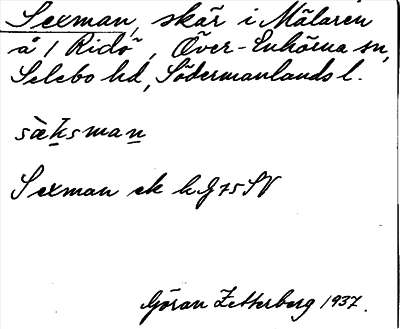 Sexman, skär i Mälaren
å / Ridö~, Över-Enhörna sn,
Selebo hd, Södermanlands l.
sàksman
Sexman ek k G 75 SV
Göran Zetterberg 1937.